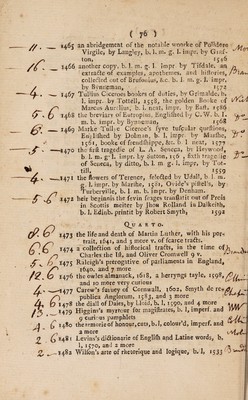 ( 76 )
11 . - 1465 an abridgement of the notable woorke of Polidore
Virgile, by Langley, b. l. m. g. l. impr. by Graf-
ton. 1546
16 . - 1466 another copy, b. l. m. g. l. impr. by Tisdale, an
extracte of examples, apothegms, and histories,
collected out of Brusonius, &c. b. l. m. g. l. impr.
by Bynneman, 1572
4 . - 1467 Tullius Ciceroes bookes of duties, by Grimalde, b.
l. impr. by Tottell, 1558, the golden Booke of
Marcus Aurelius, b. l. neat, impr. by East, 1586
5 . 6 1468 the breviary of Eutropius, Englished by C. W. b. l.
m. b. impr. by Bynneman, 1568
6 . - 1469 Marke Tullie Ciceroes fyve tusculan questions,
Englished by Dolman, b. l. impr. by Marshe,
1561, booke of frendshippe, &c. b. l. neat, 1577
5 . - 1470 the first tragedie of L. A. Seneca, by Heywood,
b. l. m. g. l. impr. by Sutton, 1561, sixth tragedie
of Seneca, by ditto, b. l. m. g. l. impr. by Tot-
till, 1559
4 . - 1471 the flowers of Terence, selected by Udall, b. l. m.
g. l. impr. by Marshe, 1561, Ovide's epistels, by
Turberville, b. l. m. b. impr. by Denham.
5 . 6 1472 heir beginnis the sevin seages translatit out of Prois
in Scottis meiter by Jhon Rolland in Dalkeith,
b. l. Edinb. printit by Robert Smyth, 1592
QUARTO.
8 . 6 1473 the life and death of Martin Luther, with his por-
trait, 1641, and 3 more v. of scarce tracts.
6 . 6 1474 a collection of historical tracts, in the time of
Charles the Ist, and Oliver Cromwell 9 v.
5 . 6 1475 Raleigh's prerogative of parliaments in England,
1640, and 7 more
12 . 6 1476 the owles almanack, 1618, a herrings tayle, 1598,
and 10 more very curious
4 . - 1477 Carew's survey of Cornwall, 1602, Smyth de re-
publica Anglorum, 1583, and 3 more
4 . 6 1478 the diall of Daies, by Lloid, b. l. 1590, and 4 more
13 . - 1479 Higgins's myrrour for magistrates, b. l. imperf. and
9 curious pamphlets
4 . 6 1480 the armorie of honour, cuts, b. l. colour'd, imperf. and
2 more
2 . 6 1481 Levins's dictionarie of English and Latine words, b.
l. 1570, and 2 more
2 . - 1482 Wilson's arte of rhetorique and logique, b. l. 1533